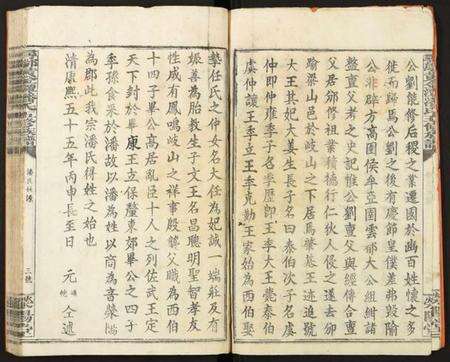 公劉能修后稷之業遷國於豳百姓懷之多
徙而歸焉公劉之後有慶節皇僕差弗毀隃
公非辟方高圉侯牟亞圉雲都大公組紺諸
盩亶父考之史記惟公劉亶父與經傳合亶
父居豳修祖業積德行仁狄人侵之遂去豳
踰梁山邑於岐山之下居焉肇基王迹追號
大王其妃大姜生長子名曰泰伯次子名曰
仲即仲雍季子名季歷即王季大王薨泰伯
虞仲讓王季立王季克勤王家始為西伯娶
摯任氏之仲女名大任為妃誠一端莊及有
娠善為胎教生子文王名昌聰明聖智孝友
性成有鳳鳴岐山之祥事殷襲父職為西伯
十四子畢公高居亂臣十人之列佐武王定
天下封於畢康王立保釐東郊畢公之四子
季孫食采於潘故以潘為姓以商為音滎陽
為郡此我宗潘氏得姓之始也
清康熙五十五年丙申長至日
元 仝述
潘氏
三號